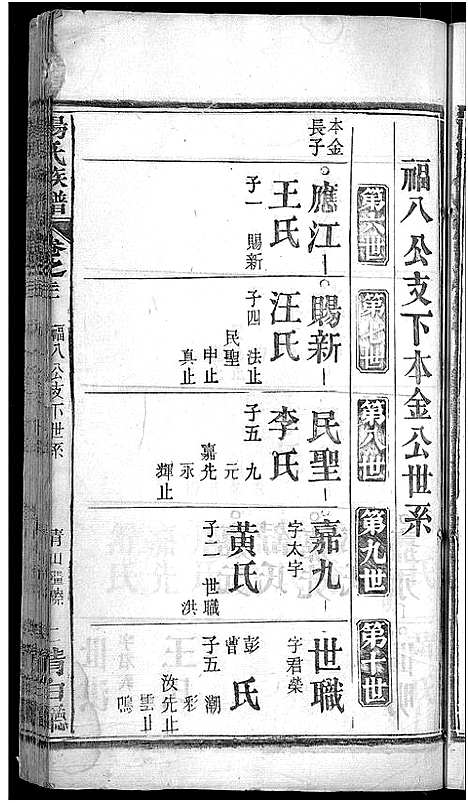 福八公支下本金公世系
第六世
第七世
第八世
第九世
第十世
本金長子
應江
王氏
子一 賜新
賜新
汪氏
子四 法止
民聖
申止
真止
民聖
李氏
子五 九
元
嘉先
永
輝止
嘉九
字太字
黄氏
子二 世職
洪
世職
字君榮
彭曾氏
子五 潮
彩
汝先止
雲止
鳴
楊氏族譜
卷之三
福八公支下世系
清白